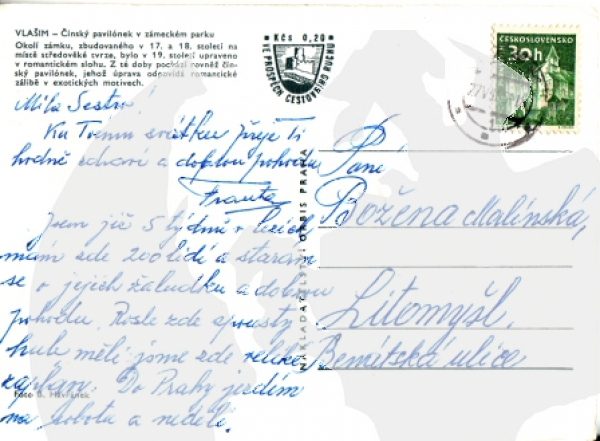 VLAŠIM – Čínský pavilónek v zámeckém parku
Okolí zámku, zbudovaného v 17. a 18. století na
místě středověké tvrze, bylo v 19. století upraveno
v romantickém slohu. Z té doby pochází rovněž čín-
ský pavilónek, jehož úprava odpovídá romantické
zálibě v exotických motivech.
Kčs 0,20
VE PROSPĚCH CESTOVNÍHO RUCHU
ČESKOSLOVENSKO
30h
Milá Sestro!
Ku Tvému svátku přeje Ti
hodně zdraví a dobrou pohodu
Franta
Jsem již 5 týdnů v lezích
mám zde 200 lidí a starám
se o jejich žaludku a dobrou
pohodu. Rosle zde spousty
hub měli jsme zde veliké
Do Prahy jezdím
na sobotu a neděli.
Paní
Božena Malínská,
Litomyšl.
Benátská ulice
NAKLADATELSTVÍ ORBIS PRAHA
Foto B. Havránek